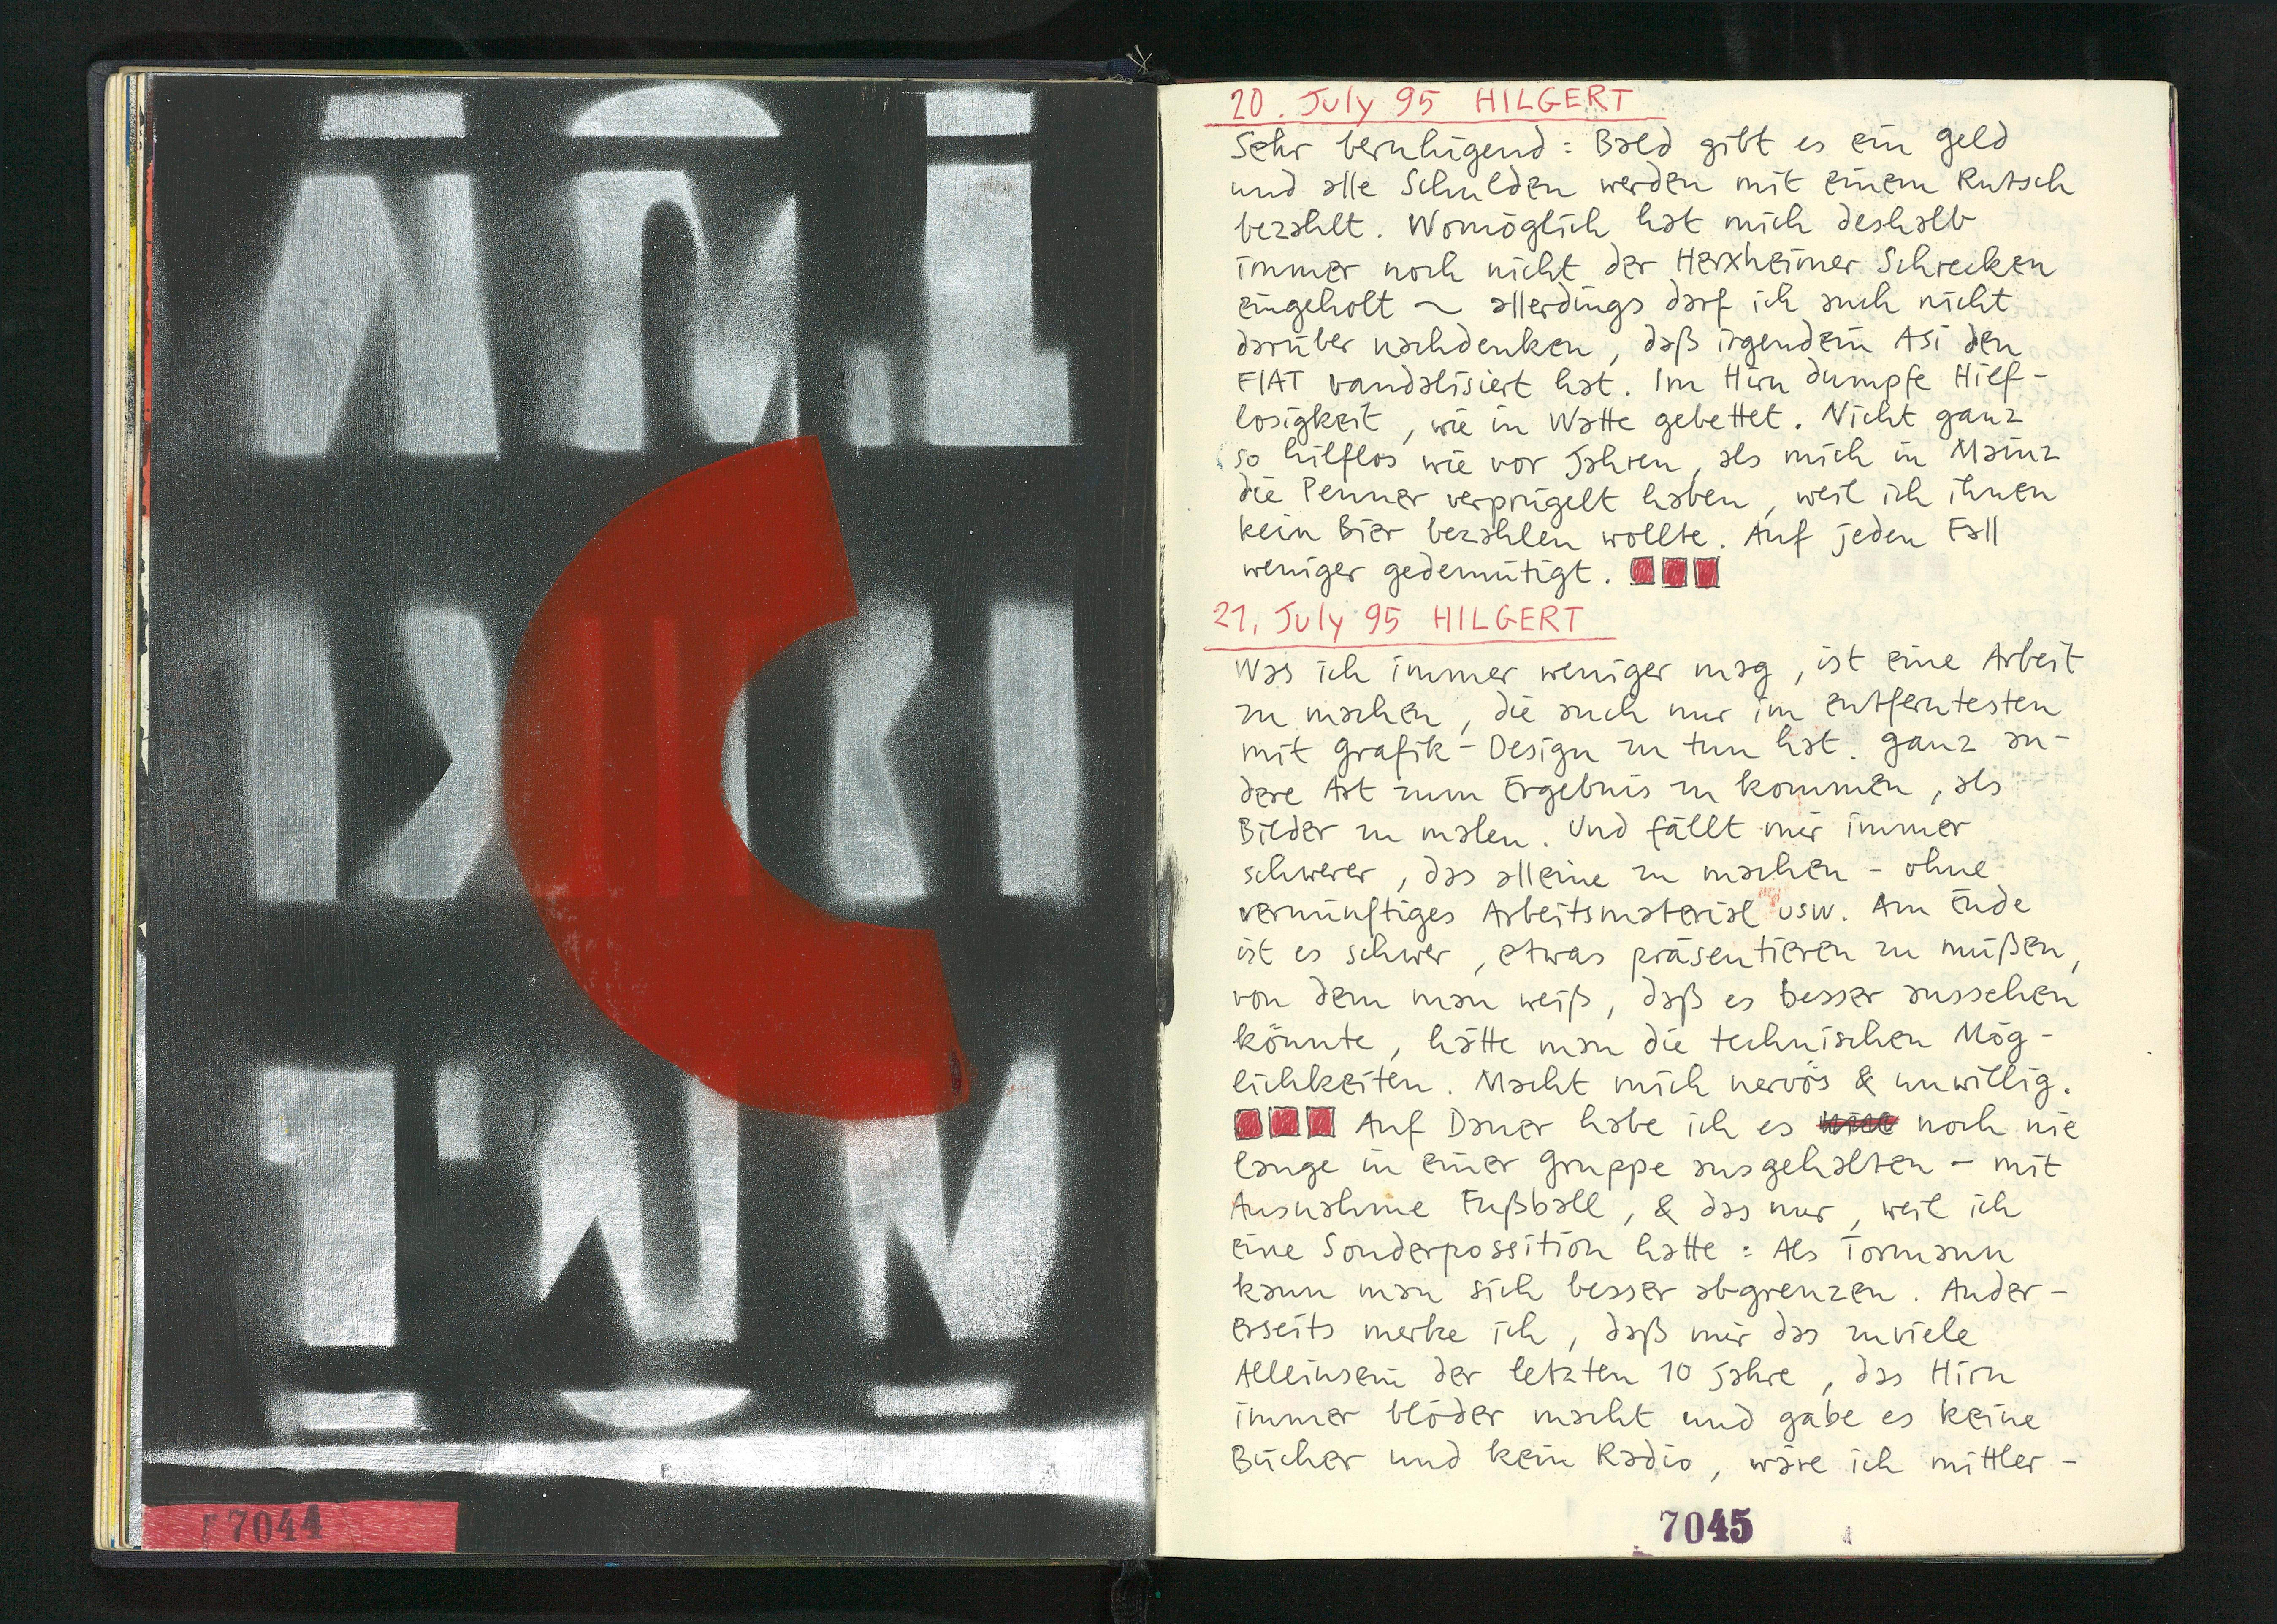 7044
20. July 95 HILGERT
Sehr beruhigend: Bald gibt es ein Geld
und alle Schulden werden mit einem Rutsch
bezahlt. Womöglich hat mich deshalb
immer noch nicht der Herxheimer Schrecken
eingeholt ~ allerdings darf ich auch nicht
darüber nachdenken, daß irgendein Asi den
FIAT vandalisiert hat. Im Hirn dumpfe Hilf-
losigkeit, wie in Watte gebettet. Nicht ganz
so hilflos wie vor Jahren, als mich in Mainz
die Penner verprügelt haben, weil ich ihnen
kein Bier bezahlen wollte. Auf jeden Fall
weniger gedemütigt.
21. July 95 HILGERT
Was ich immer weniger mag, ist eine Arbeit
zu machen, die auch nur im entferntesten
mit Grafik-Design zu tun hat. Ganz an-
dere Art zum Ergebnis zu kommen, als
Bilder zu malen. Und fällt mir immer
schwerer, das alleine zu machen - ohne
vernünftiges Arbeitsmaterial usw. Am Ende
ist es schwer, etwas präsentieren zu müßen,
von dem man weiß, daß es besser aussehen
könnte, hätte man die technischen Mög-
lichkeiten. Macht mich nervös & unwillig.
Auf Dauer habe ich es noch nie
lange in einer Gruppe ausgehalten - mit
Ausnahme Fußball, & das nur, weil ich
eine Sonderpossition hatte: Als Tormann
kann man sich besser abgrenzen. Ander-
erseits merke ich, daß mir das zuviele
Alleinsein der letzten 10 Jahre, das Hirn
immer blöder macht und gäbe es keine
Bücher und kein Radio, wäre ich mittler-
7045